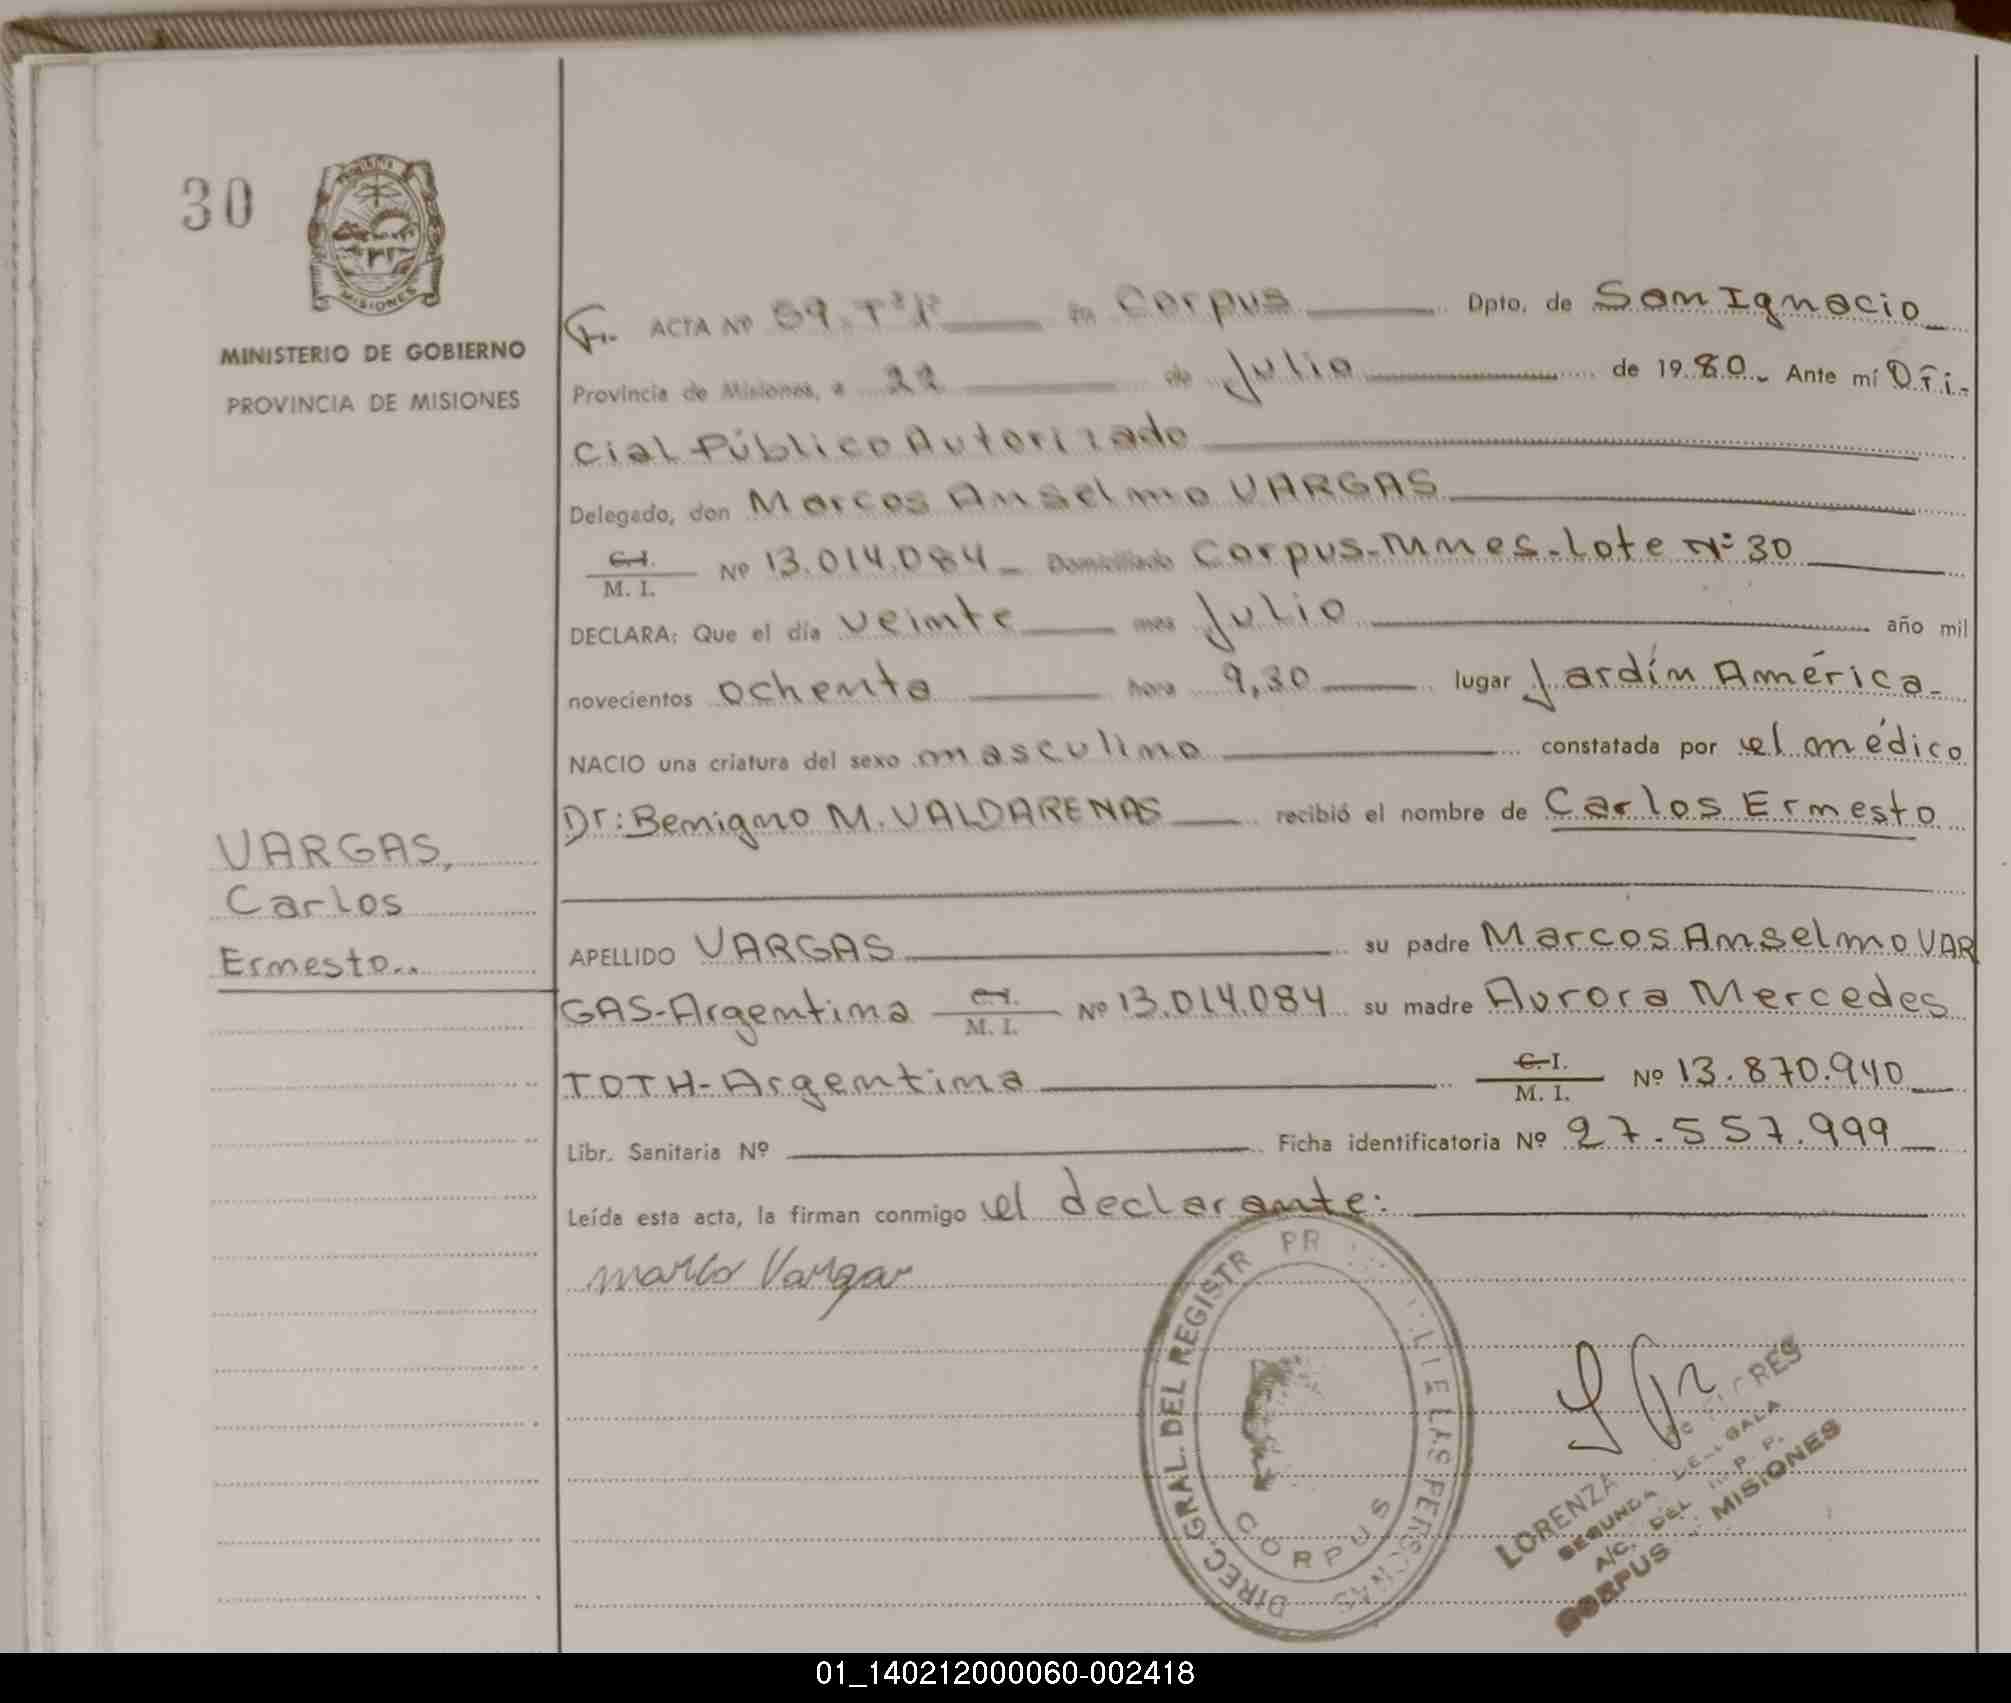 30
MISIONES
MINISTERIO DE GOBIERNO
PROVINCIA DE MISIONES
VARGAS,
Carlos
Ernesto..
ACTA Nº 59. Tº Iº en Corpus Dpto. de San Ignacio
Provincia de Misiones, a 22 de Julio de 1980. Ante mí Ofi-
cial Público Autorizado
Delegado, don Marcos Anselmo VARGAS
C.I. M. I. Nº 13.014.084 Domiciliado Corpus-Mnes-Lote Nº 30
DECLARA: Que el día veinte mes Julio año mil
novecientos ochenta hora 9,30 lugar Jardín América-
NACIO una criatura del sexo masculino constatada por el médico
Dr: Benigno M. VALDARENAS recibió el nombre de Carlos Ernesto
APELLIDO VARGAS su padre Marcos Anselmo VAR
GAS-Argentina C.I. M. I. Nº 13.014.084 su madre Aurora Mercedes
TOTH-Argentina C.I. M. I. Nº 13.870.940
Libr. Sanitaria Nº Ficha identificatoria Nº 27.557.999
Leída esta acta, la firman conmigo el declarante:
Marco Vargas
DIREC. GRAL. DEL REGISTR PR LAS PERSONAS
CORPUS
LORENZA RES
SEGUNDA DELEGADA
A/C. DEL R. P. P.
CORPUS - MISIONES
01_140212000060-002418